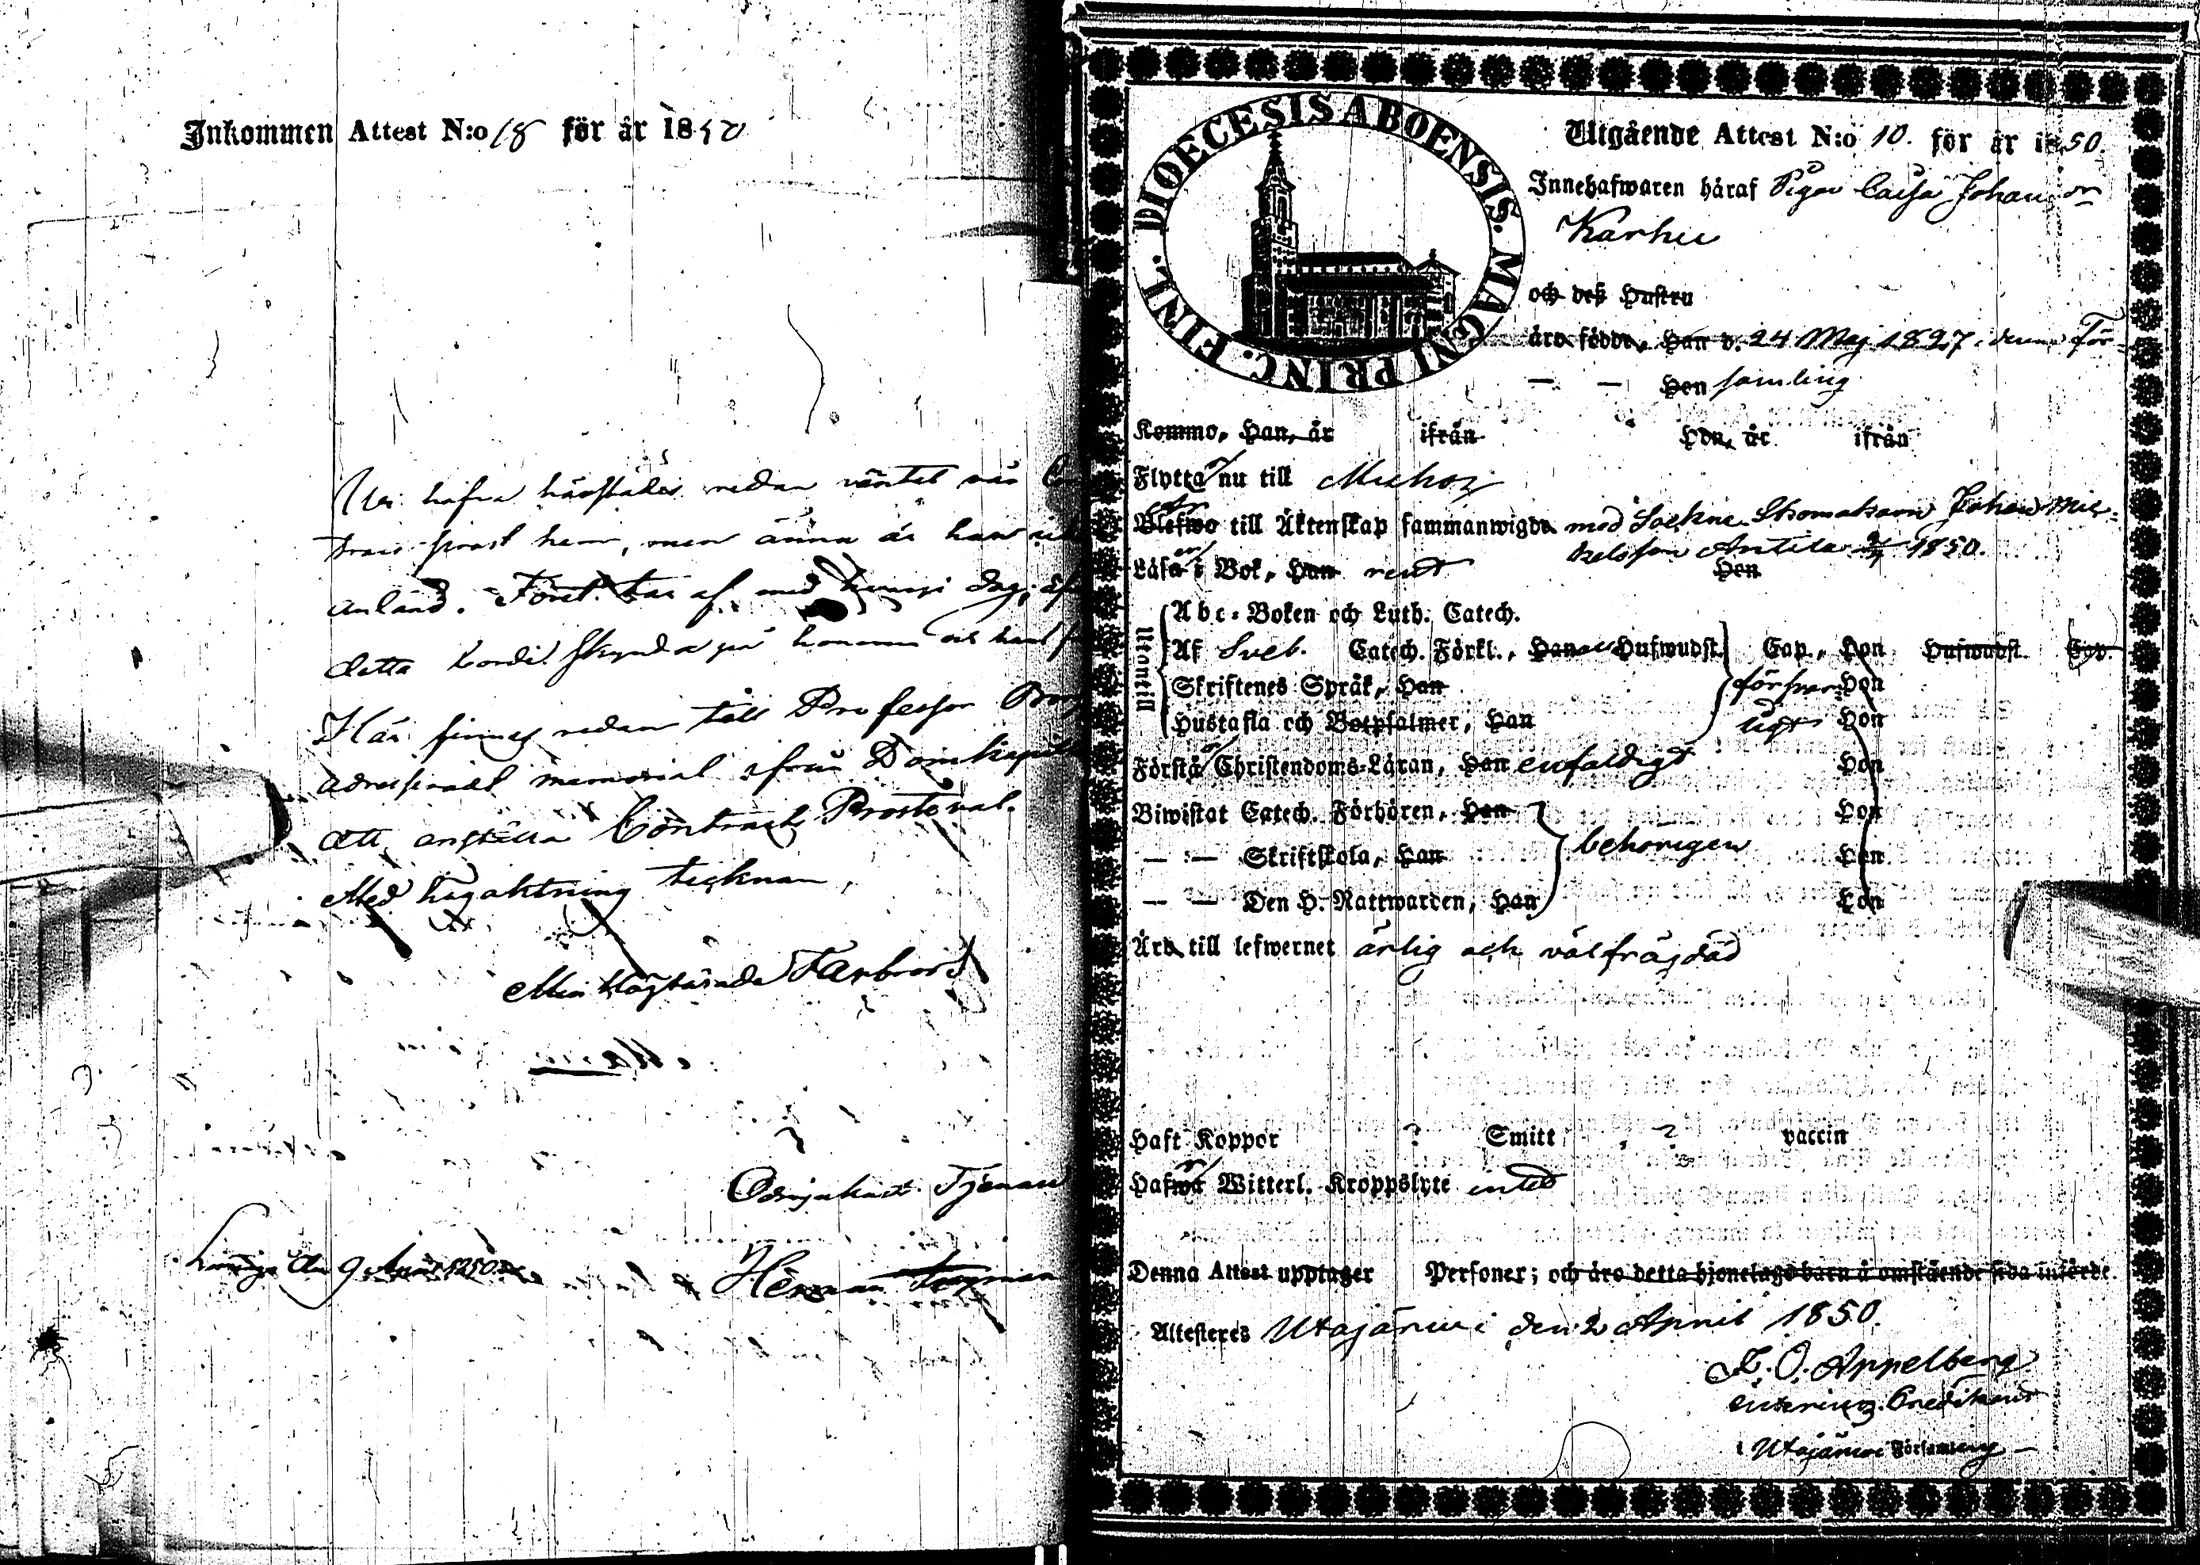 Inkommen Attest N:o 18 för år 1850
Vi hafva härstädes redan väntat vår
prost hem, men ännu är han
anländ. Föret tar af med hvarje dag,
detta borde skynda på honom och
Här finnes redan till Professor
adresseradt memorial ifrån Domkapit
att anställa Contracts Prosteval.
Med högaktning tecknar,
Min Högtärade Farbrors
Ödmjukaste Tjenare
den 9 April 1850.
Herman
DIOECESIS ABOENSIS. MAGNI PRINC. FINL.
Utgående Attest N:o 10. för år 1850.
Innehafwaren häraf Pigan Caisa Johansdr
Karhu
och deß Hustru
äro födde, Han d. 24 Maj 1827 i denna För-
— — Hon samling
Kommo, Han, år ifrån Hon, år ifrån
Flyttar nu till Muhos
Blefwo till Äktenskap sammanwigde med Sockne Skomakaren Johan Mic-
kelsson Anttila 1850.
Läsa i Bok, Han rent Hon
Utontill
Abc-Boken och Luth. Catech.
Af Sveb. Catech. Förkl., Han Hufwudst. Cap., Hon Hufwudst. Cap.
Skriftenes Språk, Han försvar Hon
Hustafla och Botpsalmer, Han ligt Hon
Förstå Christendoms-Läran, Han enfaldigt Hon
Biwistat Catech. Förhören, Han Hon
— — Skriftskola, Han behörigen Hon
— — Den H. Nattwarden, Han Hon
Äro till lefwernet ärlig och välfrägdad
Haft Koppor ? Smitt ? vaccin
Hafwa Witterl. Kroppslyte intet
Denna Attest upptager Personer; och äro detta hjonelags barn å omstående sida införde.
Attesteres Utajärvi den 2 April 1850.
F. O. Appelberg
interims Predikant
i Utajärvi Församling